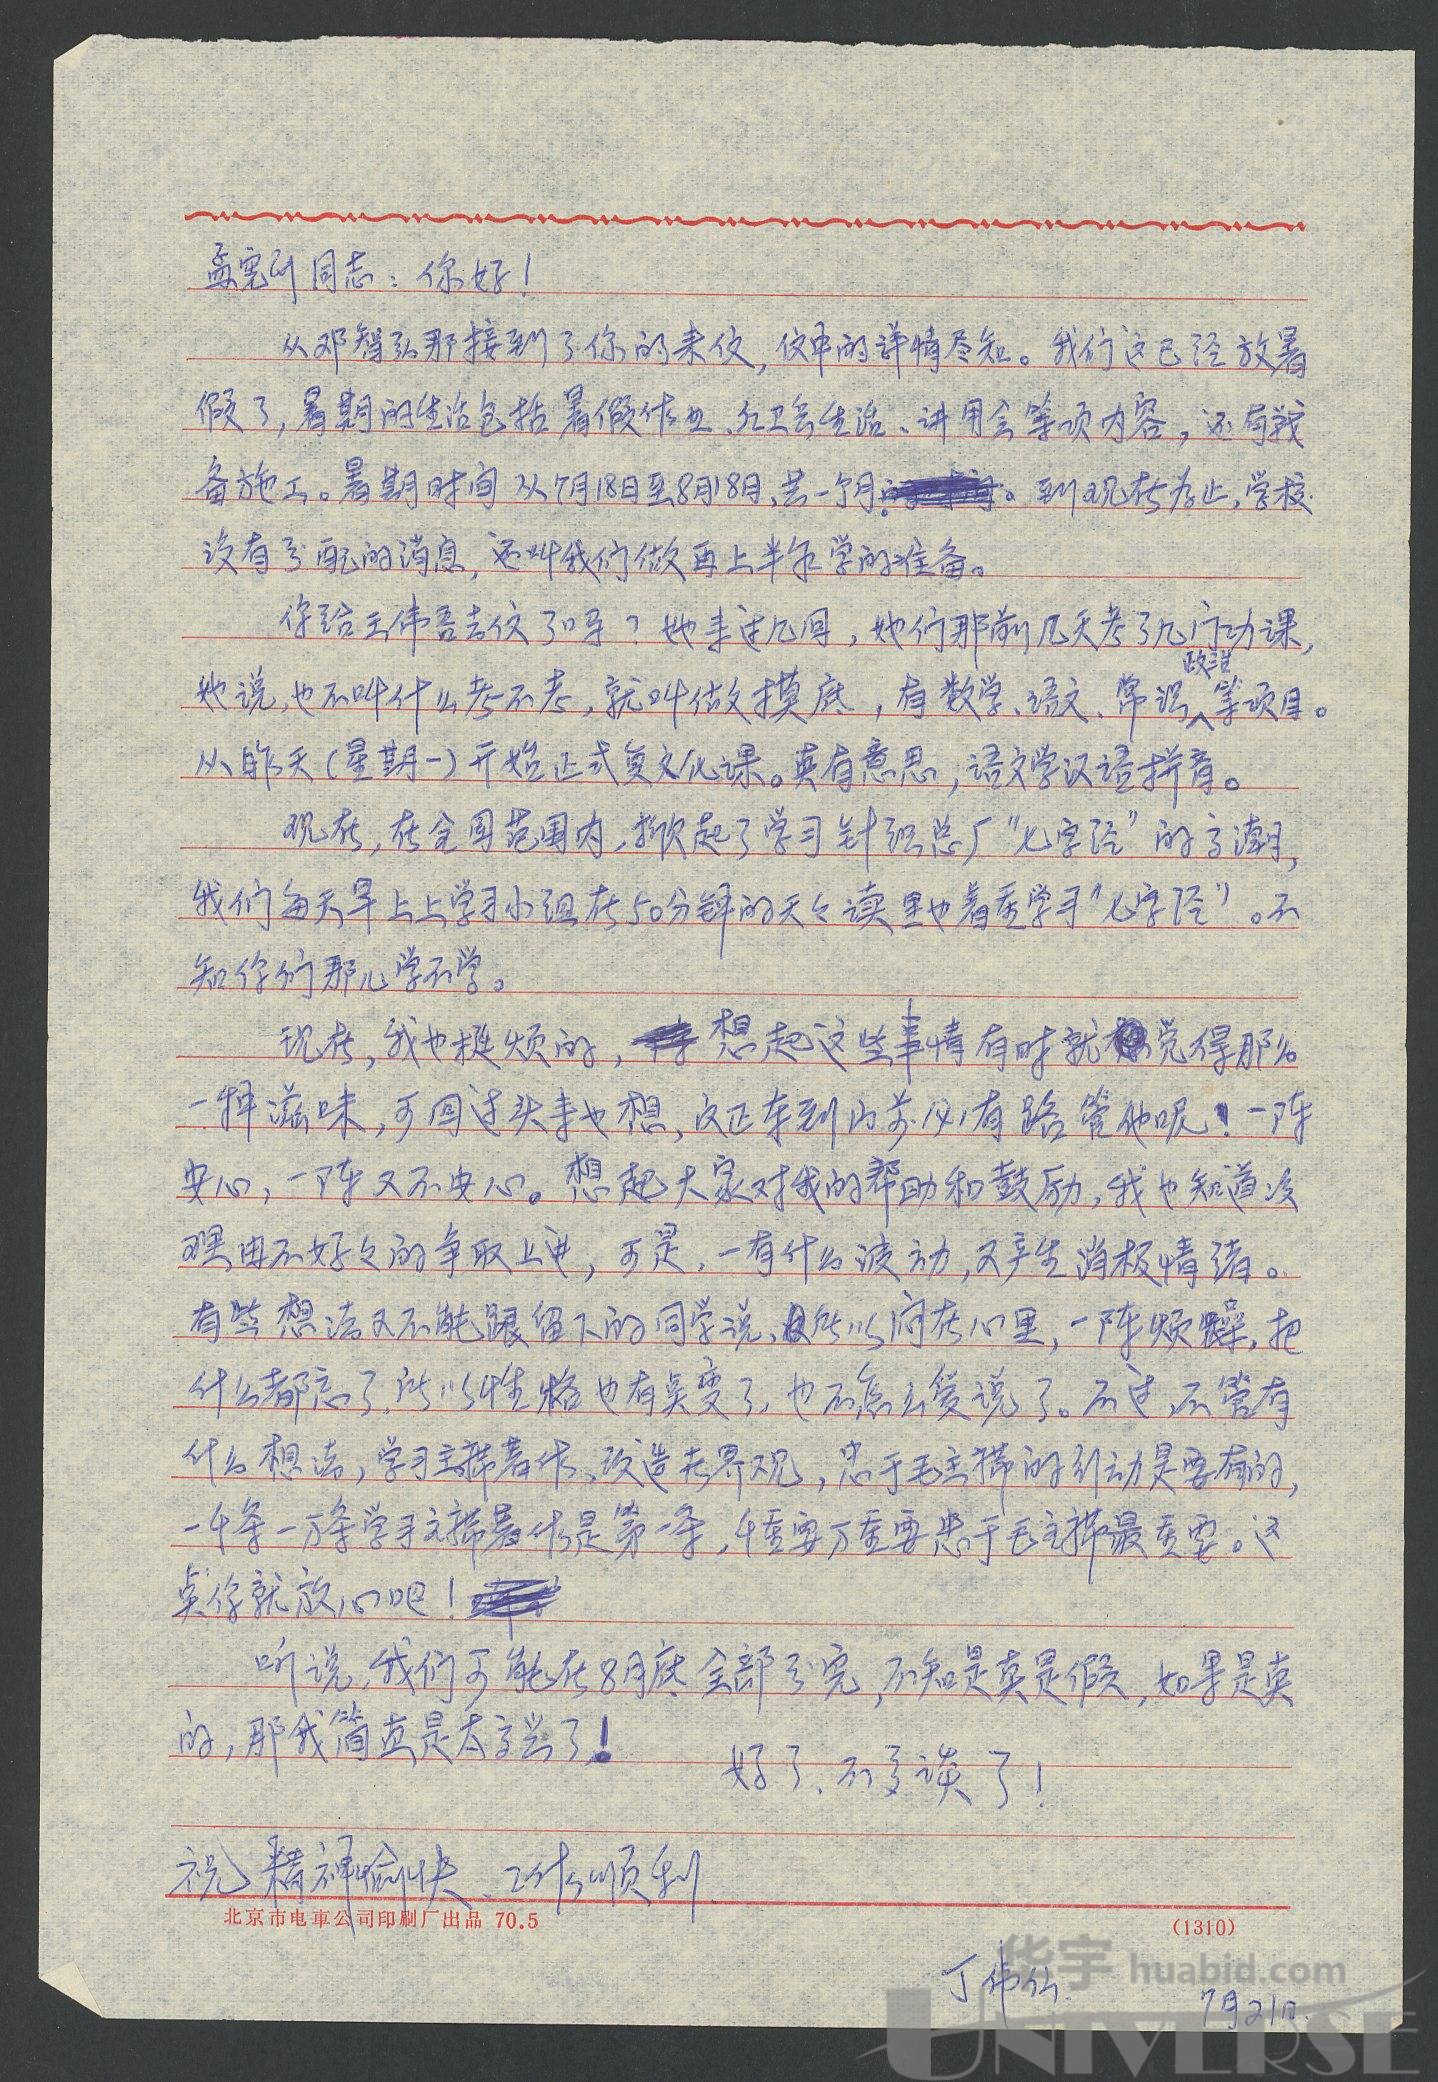 孟宪刚同志：你好！
从邓智弘那接到了你的来仪，仪中的详情尽知。我们这已经放暑
假了，暑期的生活包括暑假作业、红卫兵生活、讲用会等项内容，还有战
备施工。暑期时间从7月18日至8月18日，共一个月。到现在为止，学校
没有分配的消息，还叫我们做再上半年学的准备。
你给王伟吾去仪了吗？她来过几回，她们那前几天考了几门功课，
她说，也不叫什么考不考，就叫做摸底，有数学、语文、常识政治等项目。
从昨天（星期一）开始正式复文化课。真有意思，语文学汉语拼音。
现在，在全国范围内，掀起了学习针织总厂“七字经”的高潮，
我们每天早上上学习小组在50分钟的天々读里也着重学习“七字经”。不
知你们那儿学不学。
现在，我也挺烦的，想起这些事情有时就觉得那么
一种滋味，可回过头来也想，反正车到山前必有路管他呢！一阵
安心，一阵又不安心。想起大家对我的帮助和鼓励，我也知道没
理由不好々的争取上进，可是，一有什么波动，又产生消极情绪。
有些想法又不能跟留下的同学说，所以闷在心里，一阵烦躁，把
什么都忘了，所以性格也有点变了，也不怎么爱说了。不过，不管有
什么想法，学习主席著作、改造世界观，忠于毛主席的行动是要有的，
一千条一万条学习主席著作是第一条，千重要万重要忠于毛主席最重要。这
点你就放心吧！
听说，我们可能在8月底全部分完，不知是真是假，如果是真
的，那我简直是太高兴了！
好了，不多谈了！
祝 精神愉快、工作顺利
北京市电車公司印刷厂出品 70.5 (1310)
丁伟仙
7月21日.
华宇 huabid.com
UNIVERSE